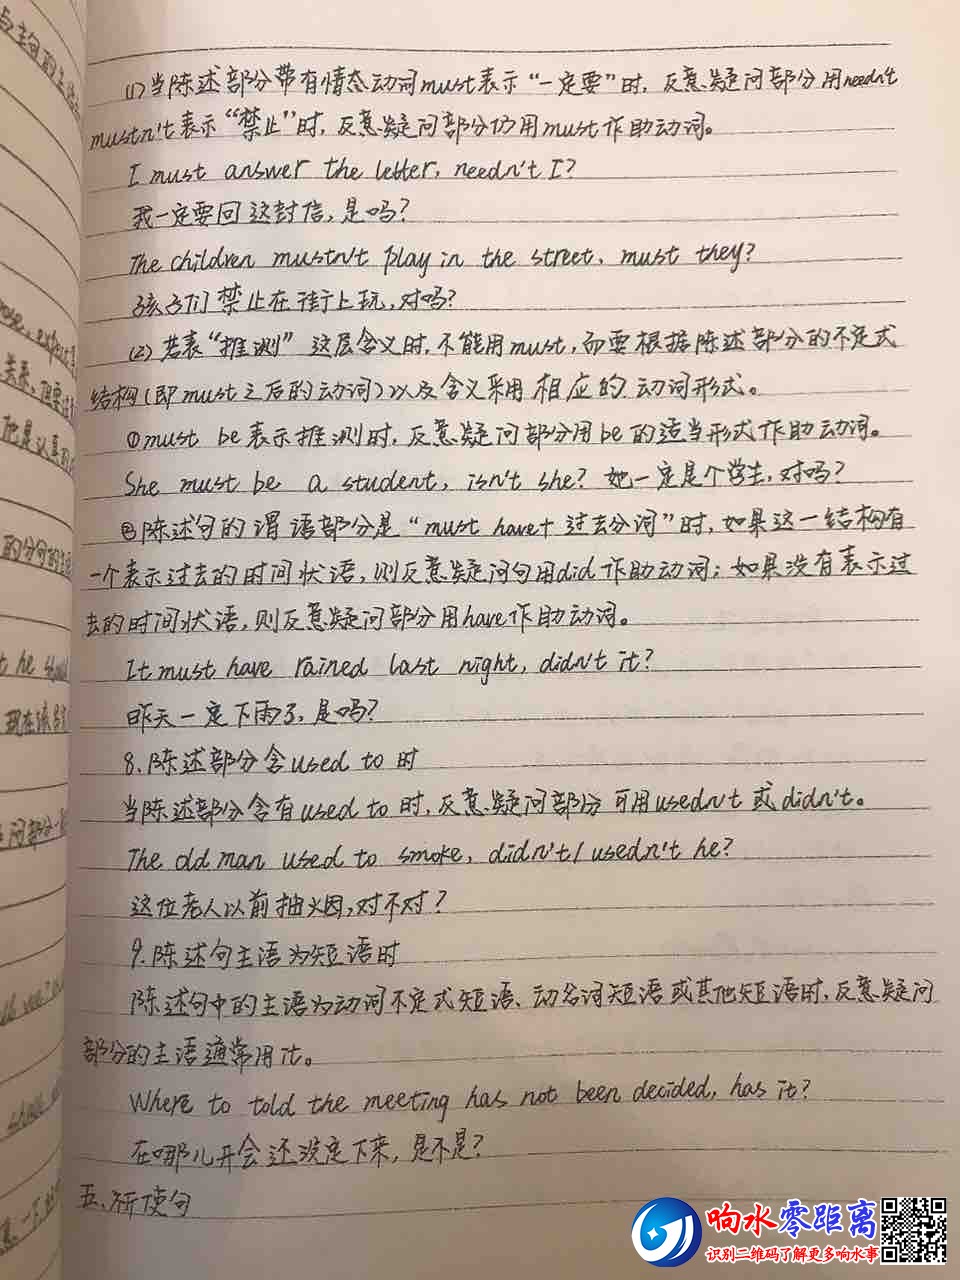 (1)当陈述部分带有情态动词must表示“一定要”时,反意疑问部分用needn't
mustn't表示“禁止”时,反意疑问部分仍用must作助动词。
I must answer the letter, needn't I?
我一定要回这封信,是吗?
The children mustn't play in the street, must they?
孩子们禁止在街上玩,对吗?
(2)若表“推测”这层含义时,不能用must,而要根据陈述部分的不定式
结构(即must之后的动词)以及含义采用相应的动词形式。
①must be表示推测时,反意疑问部分用be的适当形式作助动词。
She must be a student, isn't she? 她一定是个学生,对吗?
②陈述句的谓语部分是“must have+过去分词”时,如果这一结构有
一个表示过去的时间状语,则反意疑问句用did作助动词;如果没有表示过
去的时间状语,则反意疑问部分用have作助动词。
It must have rained last night, didn't it?
昨天一定下雨了,是吗?
8.陈述部分含used to时
当陈述部分含有used to时,反意疑问部分可用usedn't或didn't。
The old man used to smoke, didn't/usedn't he?
这位老人以前抽烟,对不对?
9.陈述句主语为短语时
陈述句中的主语为动词不定式短语、动名词短语或其他短语时,反意疑问
部分的主语通常用it。
Where to told the meeting has not been decided, has it?
在哪儿开会还没定下来,是不是?
五、祈使句
响水零距离
识别二维码了解更多响水事